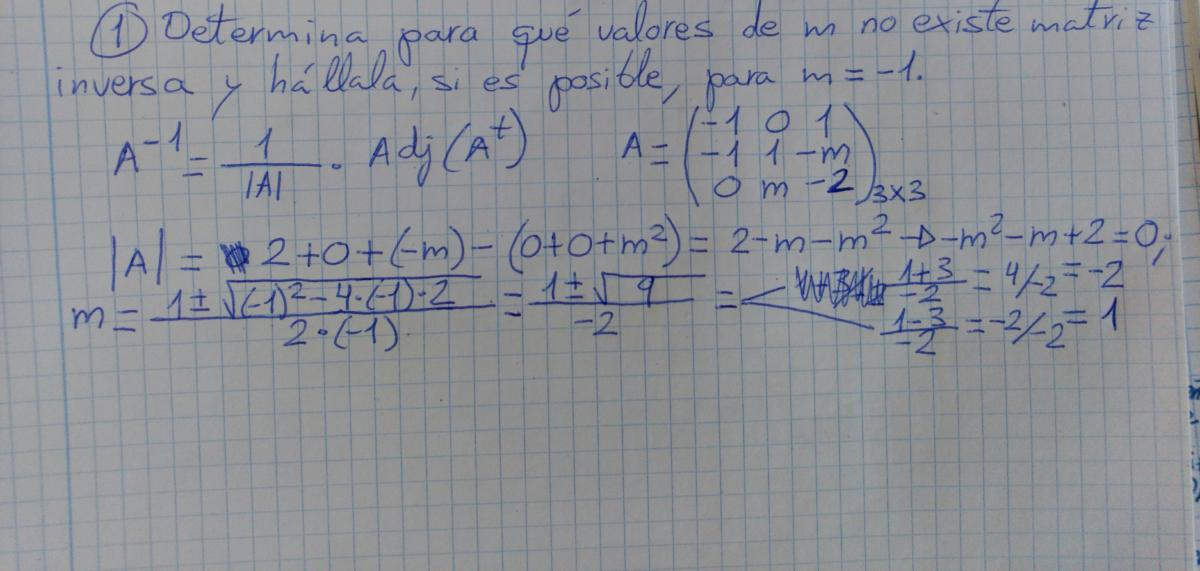 ① Determina para qué valores de m no existe matriz
inversa y hállala, si es posible, para m = -1.
A⁻¹ = 1/|A| · Adj(Aᵗ) A = (-1 0 1
-1 1 -m
0 m -2)3x3
|A| = 2+0+(-m)-(0+0+m²) = 2-m-m² → -m²-m+2=0;
m = 1±√(-1)²-4·(-1)·2 / 2·(-1) = 1±√9 / -2 = 1+3/-2 = 4/-2 = -2
1-3/-2 = -2/-2 = 1